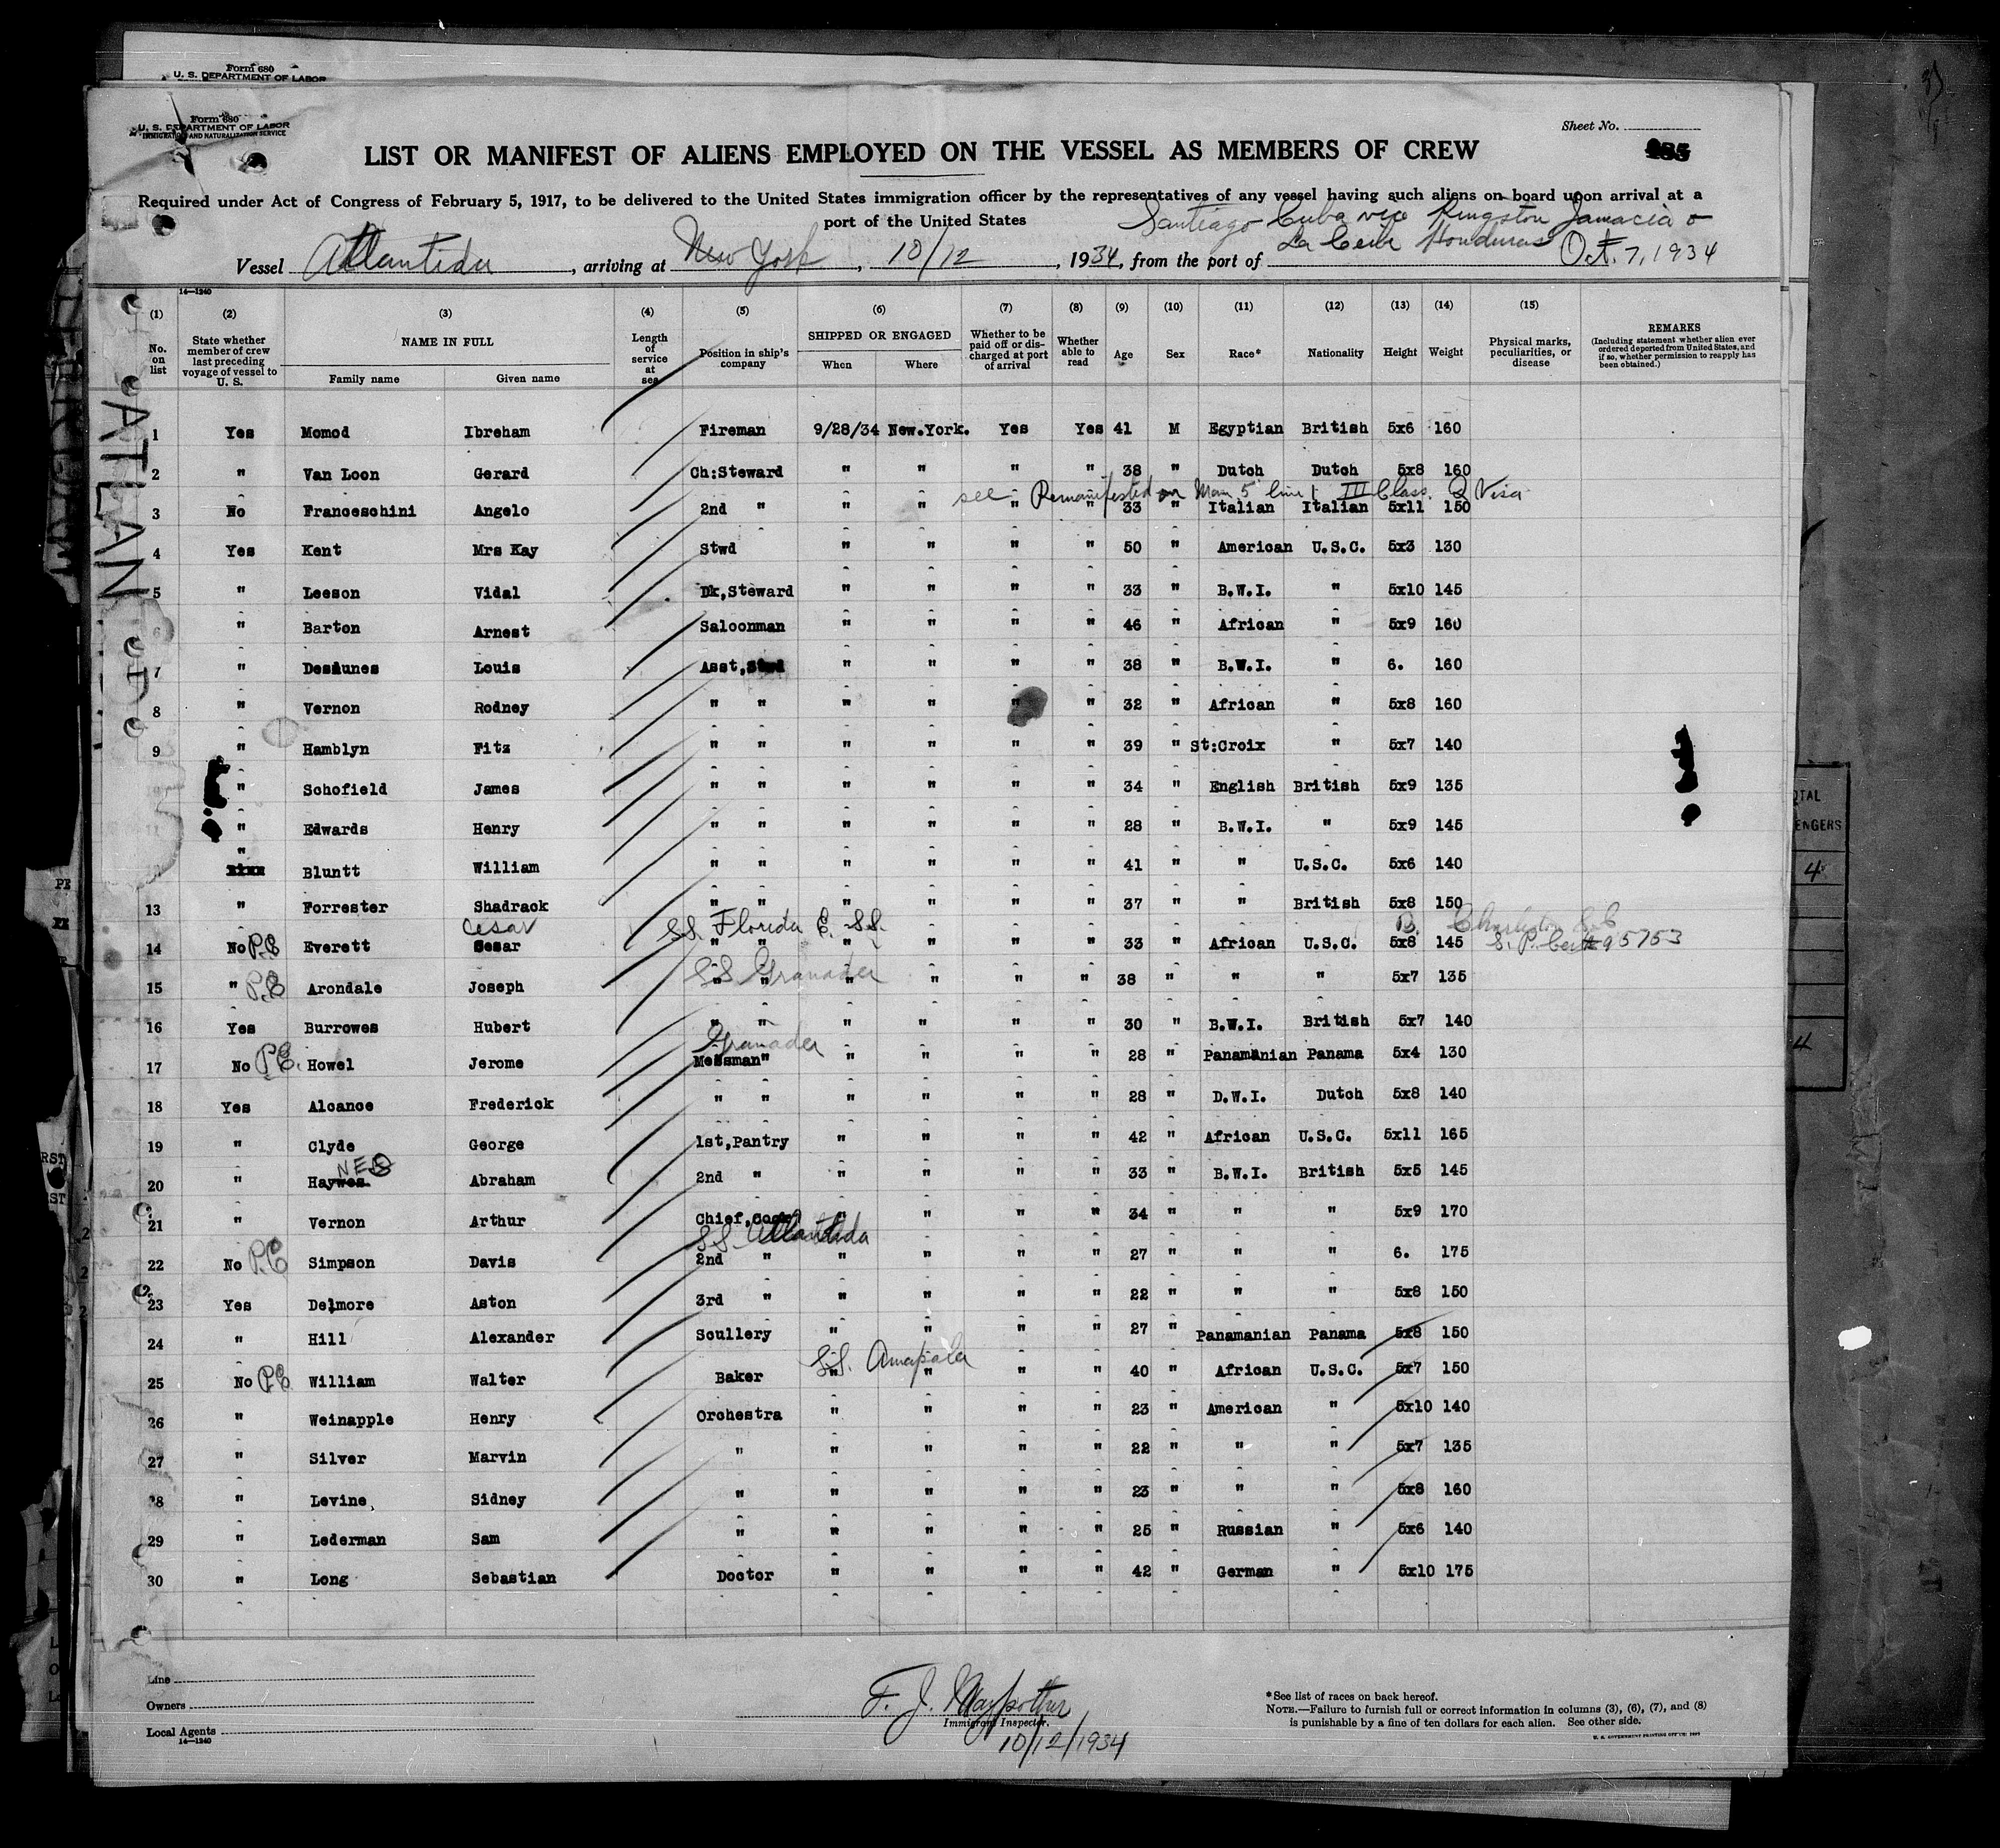 Form 680
U. S. DEPARTMENT OF LABOR
Form 680
U. S. DEPARTMENT OF LABOR
IMMIGRATION AND NATURALIZATION SERVICE
Sheet No.
LIST OR MANIFEST OF ALIENS EMPLOYED ON THE VESSEL AS MEMBERS OF CREW
Required under Act of Congress of February 5, 1917, to be delivered to the United States immigration officer by the representatives of any vessel having such aliens on board upon arrival at a
port of the United States
Santiago Cuba via Kingston Jamacia &
La Ceiba Honduras
Vessel Atlantida, arriving at New York, 10/12, 1934, from the port of Oct. 7, 1934
14-1240
(1) (2) (3) (4) (5) (6) (7) (8) (9) (10) (11) (12) (13) (14) (15)
No. on list
State whether member of crew last preceding voyage of vessel to U. S.
NAME IN FULL
Family name Given name
Length of service at sea
Position in ship's company
SHIPPED OR ENGAGED
When Where
Whether to be paid off or discharged at port of arrival
Whether able to read
Age
Sex
Race*
Nationality
Height
Weight
Physical marks, peculiarities, or disease
REMARKS
(Including statement whether alien ever ordered deported from United States, and if so, whether permission to reapply has been obtained.)
ATLAN
1 Yes Momod Ibreham Fireman 9/28/34 New.York. Yes Yes 41 M Egyptian British 5x6 160
2 " Van Loon Gerard Ch:Steward " " " " 38 " Dutch Dutch 5x8 160
see Remanifested on Man 5 line 1 III Class. Q Visa
3 No Franceschini Angelo 2nd " " " " " 33 " Italian Italian 5x11 150
4 Yes Kent Mrs Kay Stwd " " " " 50 " American U.S.C. 5x3 130
5 " Leeson Vidal Dk,Steward " " " " 33 " B.W.I. " 5x10 145
6 " Barton Arnest Saloonman " " " " 46 " African " 5x9 160
7 " Desdunes Louis Asst,Stwd " " " " 38 " B.W.I. " 6. 160
8 " Vernon Rodney " " " " " " 32 " African " 5x8 160
9 " Hamblyn Fitz " " " " " " 39 " St:Croix " 5x7 140
" Schofield James " " " " " " 34 " English British 5x9 135
11 " Edwards Henry " " " " " " 28 " B.W.I. " 5x9 145
" Bluntt William " " " " " " 41 " " U.S.C. 5x6 140
13 " Forrester Shadrack " " " " " " 37 " " British 5x8 150
Cesar SS. Florida E. SS. B. Charleston S.C
14 No P.E Everett Cesar " " " " " " 33 " African U.S.C. 5x8 145 S. P. Cert # 95753
SS Granader
15 " P.E Arondale Joseph " " " " " " 38 " " " 5x7 135
16 Yes Burrowes Hubert " " " " " " 30 " B.W.I. British 5x7 140
Granader
17 No P.E. Howel Jerome Messman" " " " " 28 " Panamanian Panama 5x4 130
18 Yes Alcance Frederick " " " " " " 28 " D.W.I. Dutch 5x8 140
19 " Clyde George 1st,Pantry " " " " 42 " African U.S.C. 5x11 165
NES
20 " Haywes Abraham 2nd " " " " " 33 " B.W.I. British 5x5 145
21 " Vernon Arthur Chief,Cook " " " " 34 " " " 5x9 170
SS. Atlantida
22 No P.E Simpson Davis 2nd " " " " " 27 " " " 6. 175
23 Yes Delmore Aston 3rd " " " " " 22 " " " 5x8 150
24 " Hill Alexander Scullery " " " " 27 " Panamanian Panama 5x8 150
SS. Amapala
25 No P.E William Walter Baker " " " " 40 " African U.S.C. 5x7 150
26 " Weinapple Henry Orchestra " " " " 23 " American " 5x10 140
27 " Silver Marvin " " " " " 22 " " " 5x7 135
28 " Levine, Sidney " " " " " 23 " " " 5x8 160
29 " Lederman Sam " " " " " 25 " Russian " 5x6 140
30 " Long Sebastian Doctor " " " " 42 " German " 5x10 175
Line
Owners
Local Agents
14-1240
F. J.
Immigrant Inspector.
10/12/1934
*See list of races on back hereof.
NOTE.—Failure to furnish full or correct information in columns (3), (6), (7), and (8)
is punishable by a fine of ten dollars for each alien. See other side.
U. S. GOVERNMENT PRINTING OFFICE